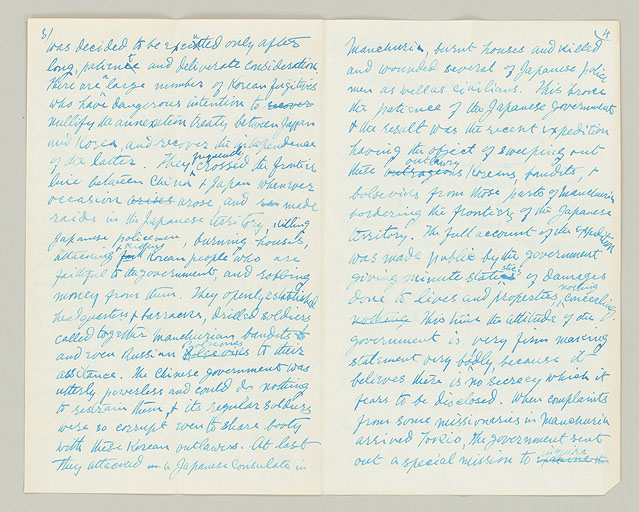 3/
was decided to be executed only after
long, patience and deliberate consideration
there are a large number of Korean fugitives
who have dangerous intention to recover
nullify the annexation treaty between Japan
and Korea, and recover the independence
of the latter. They frequently crossed the frontier
line between China & Japan whenever
occasion arises arose, and made
raids in the Japanese territory, killing
Japanese policemen, burning houses,
attacking Korean people who are
faithful to the government, and robbing
money from them. They openly established
headquarters & barracks, drilled soldiers
called together Manchurian bandits &
and even Russian Bolsheviks to their
assistance. The Chinese government was
utterly powerless and could do nothing
to restrain them, & its regular soldiers
were so corrupt even to share booty
with these Korean outlaws. At last
they attacked a Japanese Consulate in
4
Manchuria, burnt houses and killed
and wounded several of Japanese police
men as well as civilians. This broke
the patience of the Japanese government
& the result was the recent expedition
having the object of sweeping out
these outrageous outlawry Koreans, bandits, &
bolseviks from those parts of Manchuria
bordering the frontiers of the Japanese
territory. The full account of the expedition
was made public by the government
giving minute statistics of damages
done to lives and properties, nothing concealing
nothing. This time the attitude of the
government is very firm making
statement very boldly, because it
believes there is no secrecy which it
fears to be disclosed. When complaints
from some missionaries in Manchuria
arrived Tokio, the government sent
out a special mission to